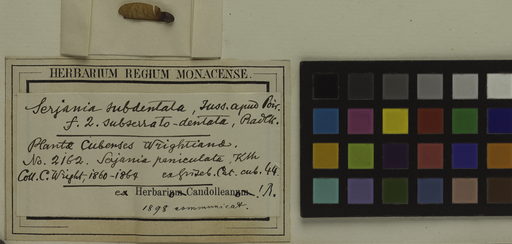 HERBARIUM REGIUM MONACENSE.
Serjania subdentata, Juss. apud Poir.
f. 2. subserrato-dentata, Radlk.
Plantae Cubenses Wrightianae.
No. 2162. Serjania paniculata, Kth
Coll. C. Wright, 1860-1864 ex Griseb. Cat. cub. 44
ex Herbarium Candolleanum!
1898 communicat.